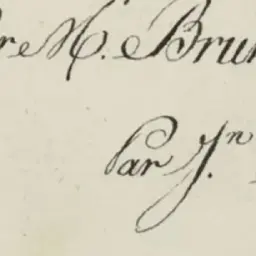 r M. Bru
Par J.n